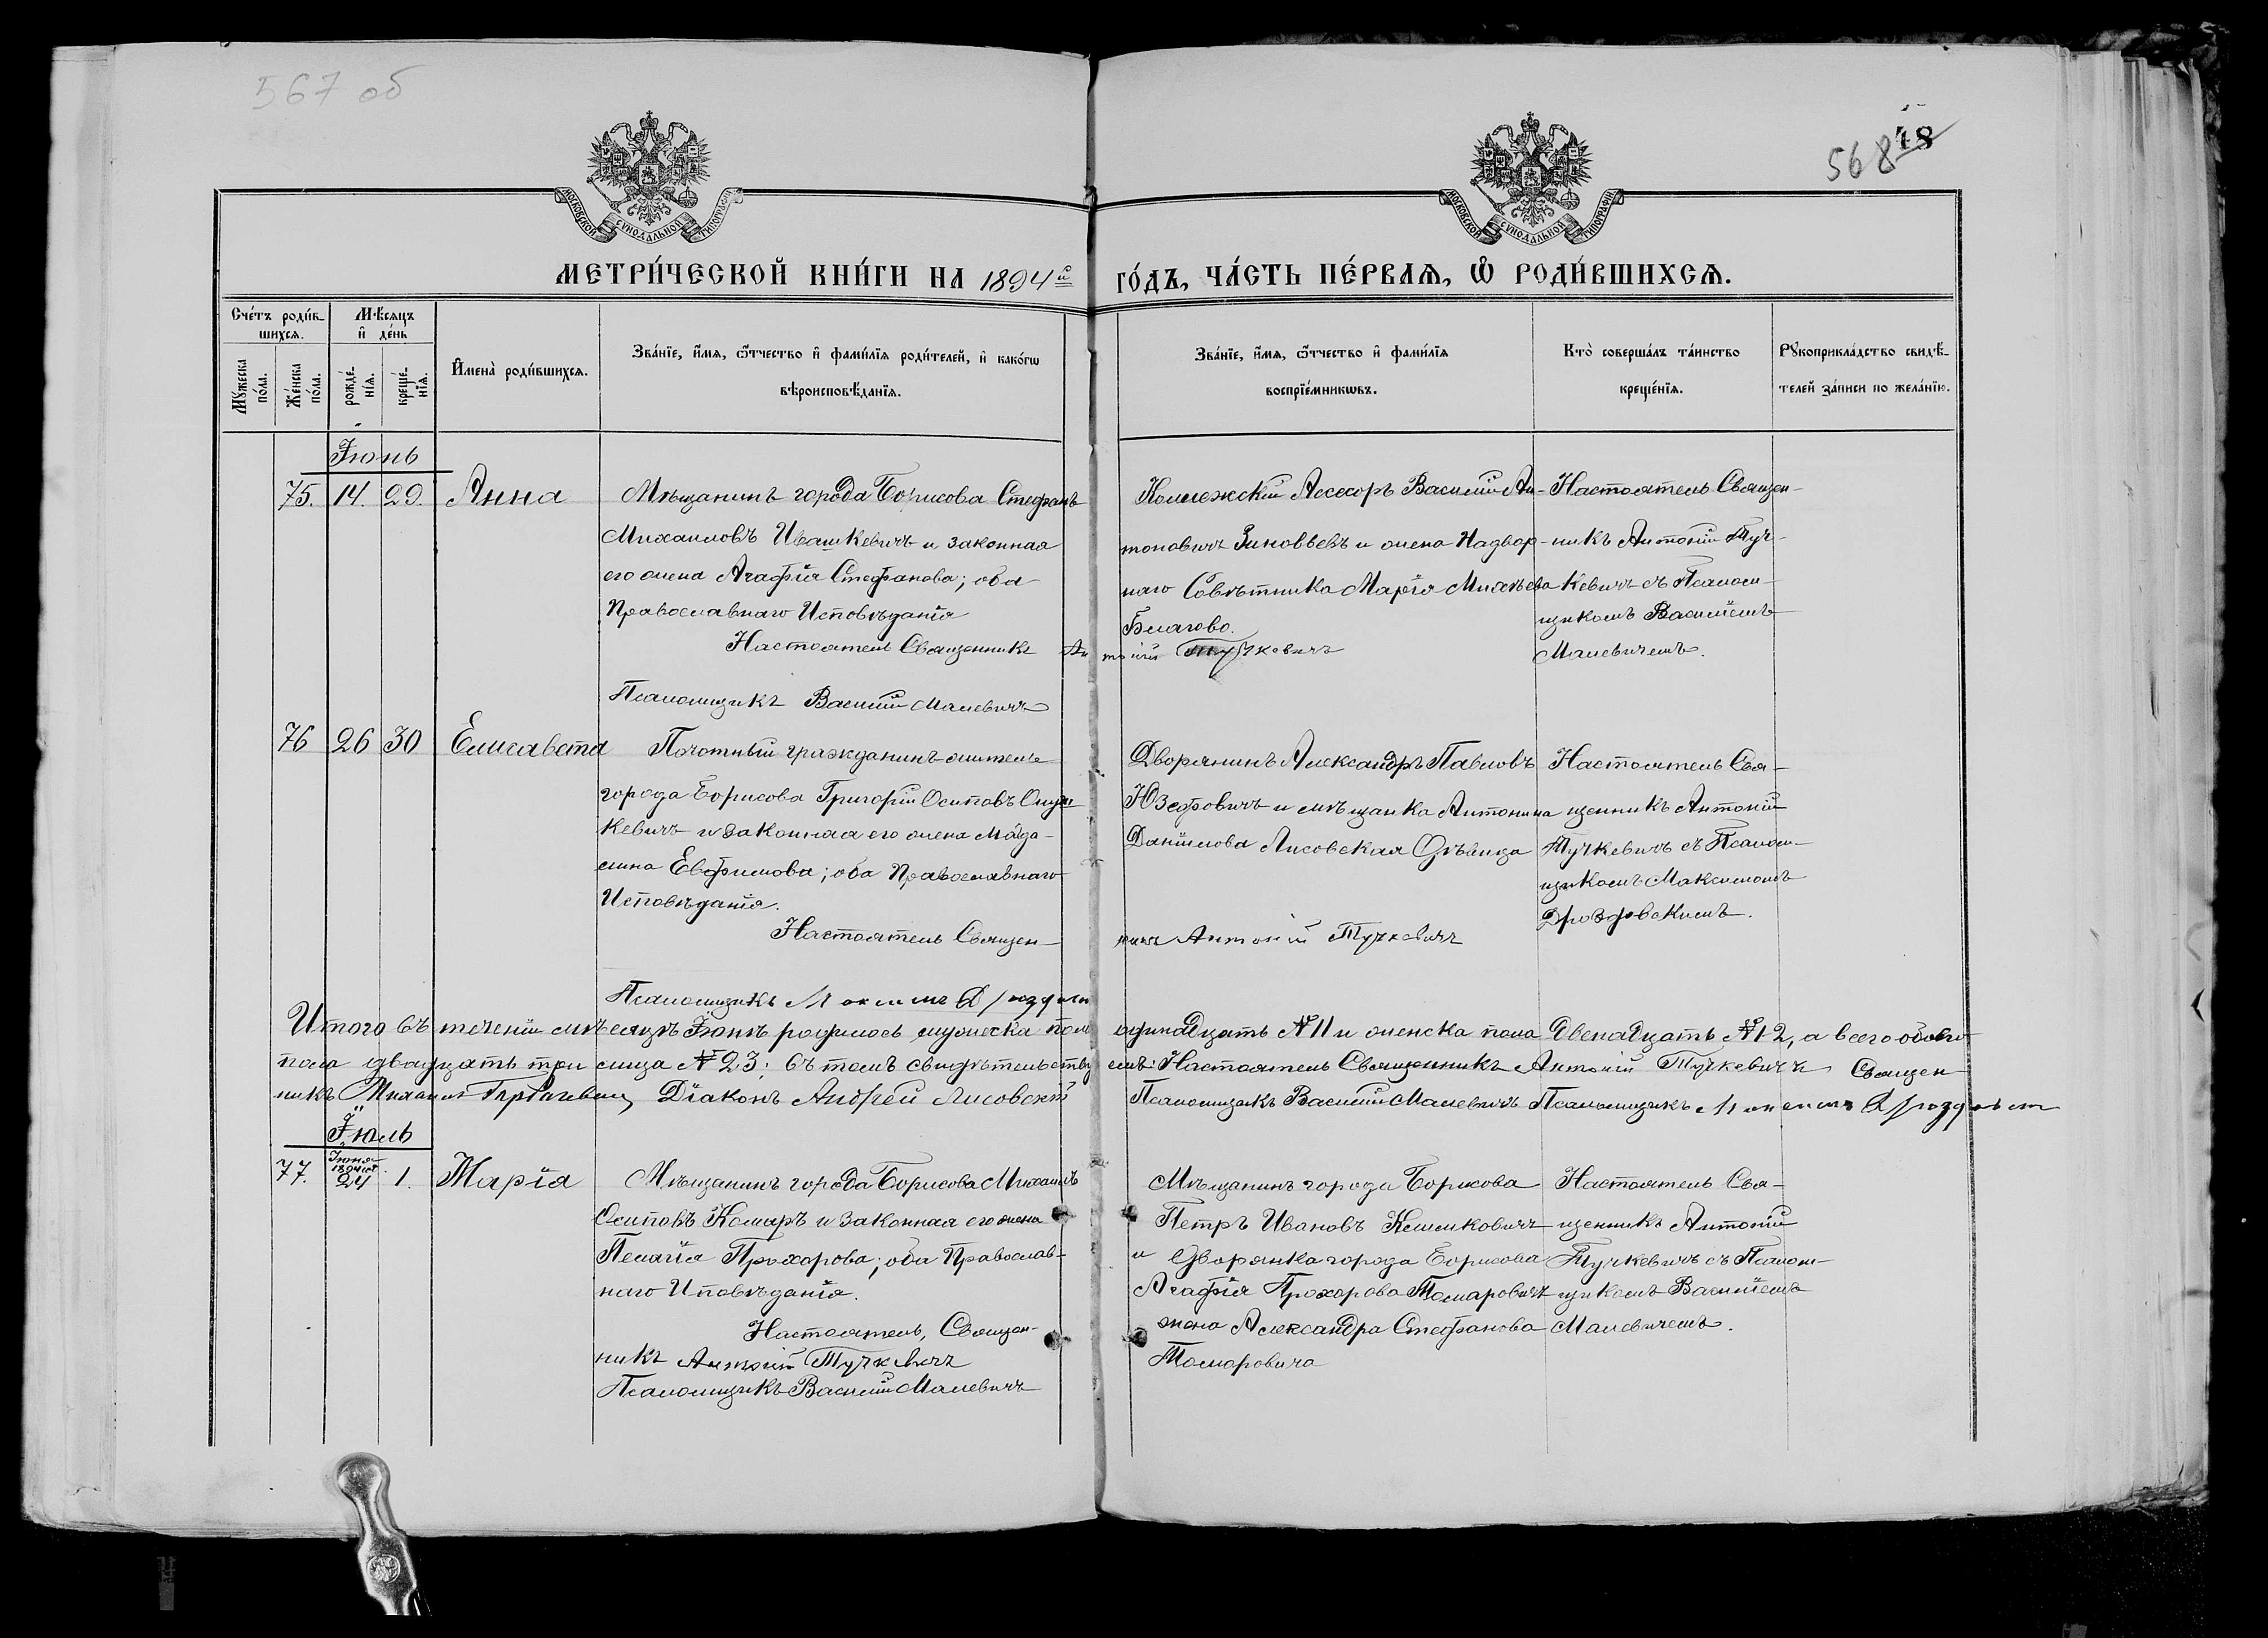 567 об
568
48
МОСКОВСКОЙ СѴНОДАЛЬНОЙ ТИПОГРАФІИ
МОСКОВСКОЙ СѴНОДАЛЬНОЙ ТИПОГРАФІИ
МЕТРИ́ЧЕСКОЙ КНИ́ГИ НА 1894й ГО́ДЪ, ЧА́СТЬ ПЕ́РВАЯ, Ѡ РОДИ́ВШИХСЯ.
Сче́тъ роди́в-
шихся.
Мꙋ́жеска по́ла.
Же́нска по́ла.
Мѣ́сяцъ и де́нь
рожде́-
нїя.
креще́-
нїя.
И҆мена̀ роди́вшихся.
Зва́нїе, и҆́мя, ѻ҆́тчество и҆ фами́лїя роди́телей, и҆ како́гѡ
вѣроисповѣ́данїя.
Зва́нїе, и҆́мя, ѻ҆́тчество и҆ фами́лїя
воспрїе́мникѡвъ.
Кто̀ соверша́лъ та́инство
креще́нїя.
Рꙋкоприкла́дство свидѣ́-
телей за́писи по жела́нїю.
Іюнь
75. 14. 29. Анна
Мѣщанинъ города Борисова Стефанъ
Михаиловъ Ивашкевичъ и законная
его жена Агафія Стефанова; оба
Православнаго Исповѣданія
Настоятель Священникъ Антоній Тучкевичъ
Псаломщикъ Василій Малевичъ
Коллежскій Ассесоръ Василій Ан-
тоновичъ Зиновьевъ и жена Надвор-
наго Совѣтника Марія Михѣева
Благово.
Настоятель Священ-
никъ Антоній Туч-
кевичъ съ Псалом-
щикомъ Василіемъ
Малевичемъ.
76 26 30 Елисавета
Почотный гражданинъ житель
города Борисова Григорій Осиповъ
кевичъ и законная его жена Магда-
лина Евфимова; оба Православнаго
Исповѣданія.
Настоятель Священ-
никъ Антоній Тучкевичъ
Псаломщикъ Максимъ Дроздовскій
Дворянинъ Александръ Павловъ
Юзефовичъ и мѣщанка Антонина
Даніилова Лисовская Дѣвица
Настоятель Свя-
щенникъ Антоній
Тучкевичъ съ Псалом-
щикомъ Максимомъ
Дроздовскимъ.
Итого въ теченіи мѣсяцѣ Іюнѣ родилось мужеска пола одинадцать № 11 и женска пола двенадцать № 12, а всего обоего
пола двадцать три лица № 23; въ томъ свидѣтельствуемъ: Настоятель Священникъ Антоній Тучкевичъ Священ
никъ Михаилъ Діаконъ Андрей Лисовскій Псаломщикъ Василій Малевичъ Псаломщикъ Максимъ Дроздовскій
Іюль
77. Іюня 1894 24 1. Марія
Мѣщанинъ города Борисова Михаилъ
Осиповъ Комаръ и законная его жена
Пелагія Прохорова; оба Православ-
наго Иповѣданія.
Настоятель, Священ-
никъ Антоній Тучкевичъ
Псаломщикъ Василій Малевичъ
Мѣщанинъ города Борисова
Петръ Ивановъ
и Дворянка города Борисова
Агафія Прохорова Томаровичъ
жена Александра Стефанова
Томаровича
Настоятель Свя-
щенникъ Антоній
Тучкевичъ съ Псалом-
щикомъ Василіемъ
Малевичемъ.